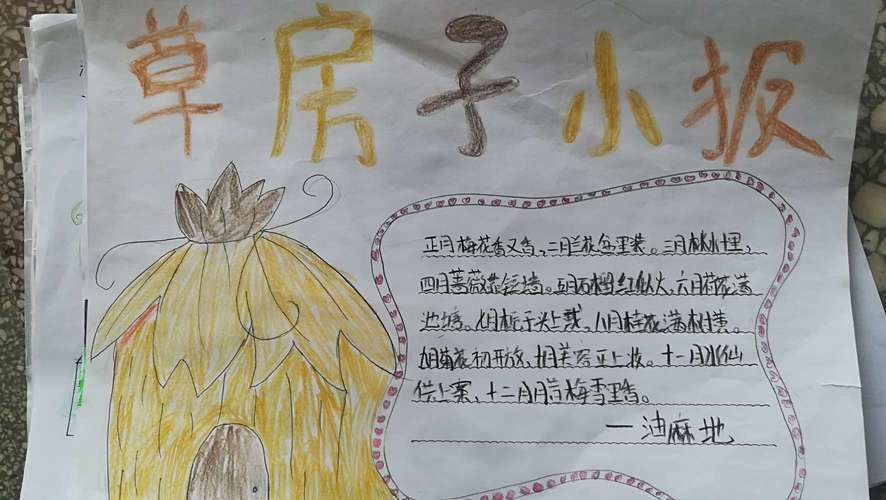 草房子小报
正月梅花香又香,二月兰花盆里装。三月桃
四月蔷薇靠短墙。五月石榴红似火,六月荷花满
池塘。七月栀子头上戴,八月桂花满树黄。
九月菊花初开放,十月芙蓉正上妆。十一月水仙
供上案,十二月腊梅雪里香。
一油麻地